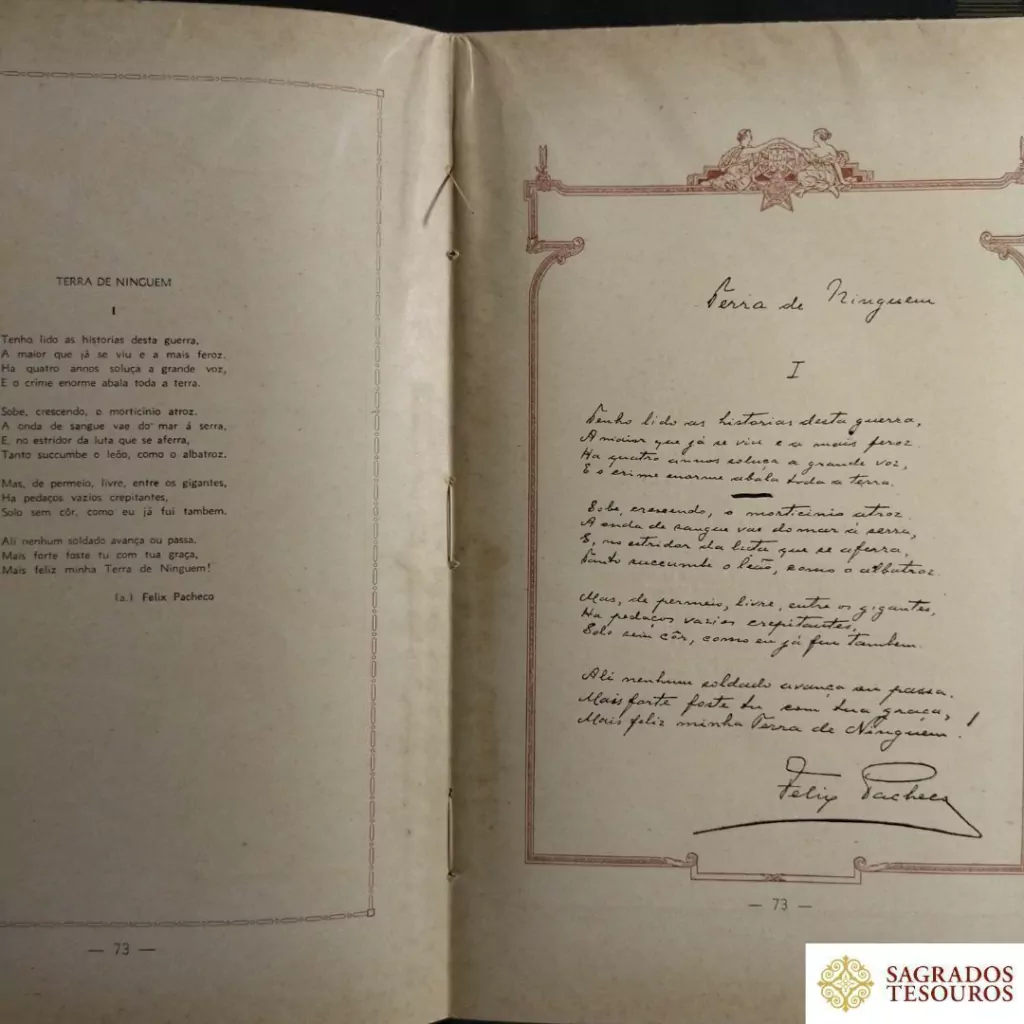 TERRA DE NINGUEM
I
Tenho lido as historias desta guerra,
A maior que já se viu e a mais feroz.
Ha quatro annos soluça a grande voz,
E o crime enorme abala toda a terra.
Sobe, crescendo, o morticínio atroz.
A onda de sangue vae do mar á serra,
E, no estridor da luta que se aferra,
Tanto succumbe o leão, como o albatroz.
Mas, de permeio, livre, entre os gigantes,
Ha pedaços vazios crepitantes,
Solo sem côr, como eu já fui tambem.
Ali nenhum soldado avança ou passa.
Mais forte foste tu com tua graça,
Mais feliz minha Terra de Ninguem!
(a.) Felix Pacheco
— 73 —
Terra de Ninguem
I
Tenho lido as historias desta guerra,
A maior que já se viu e a mais feroz.
Ha quatro annos soluça a grande voz,
E o crime enorme abala toda a terra.
Sobe, crescendo, o morticinio atroz.
A onda de sangue vae do mar á serra,
E, no estridor da luta que se aferra,
Tanto succumbe o leão, como o albatroz.
Mas, de permeio, livre, entre os gigantes,
Ha pedaços vazios crepitantes,
Solo sem côr, como eu já fui tambem.
Ali nenhum soldado avança ou passa.
Mais forte foste tu com tua graça,
Mais feliz minha Terra de Ninguem!
Felix Pacheco
— 73 —
SAGRADOS
TESOUROS